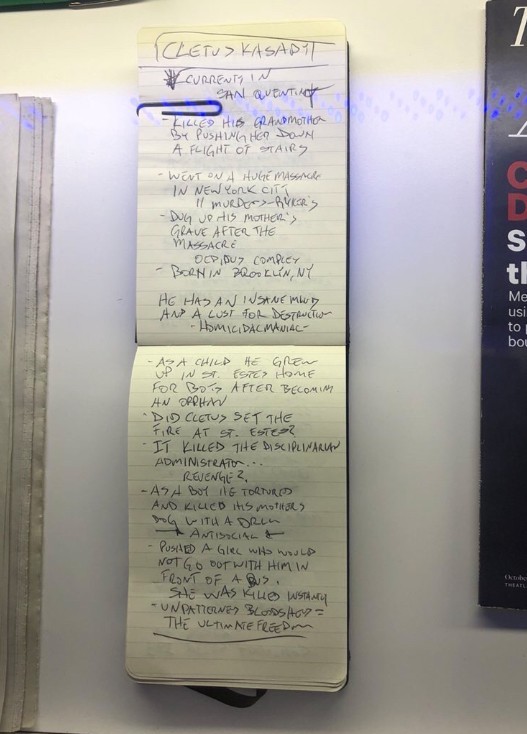 CLETUS KASADY
* CURRENTS IN
SAN QUENTIN *
- KILLED HIS GRANDMOTHER
BY PUSHING HER DOWN
A FLIGHT OF STAIRS
- WENT ON A HUGE MASSACRE
IN NEW YORK CITY
11 MURDERS - RIKER'S
- DUG UP HIS MOTHER'S
GRAVE AFTER THE
MASSACRE
OEDIPUS COMPLEX
- BORN IN BROOKLIN, NY
HE HAS AN INSANE MIND
AND A LUST FOR DESTRUCTION
- HOMICIDAL MANIAC -
- AS A CHILD HE GREW
UP IN ST. ESTES HOME
FOR BOYS AFTER BECOMING
AN ORPHAN
- DID CLETUS SET THE
FIRE AT ST. ESTES?
- IT KILLED THE DISCIPLINARIAN
ADMINISTRATOR...
REVENGE?
- AS A BOY HE TORTURED
AND KILLED HIS MOTHERS
DOG WITH A DRILL
ANTISOCIAL
- PUSHED A GIRL WHO WOULD
NOT GO OUT WITH HIM IN
FRONT OF A BUS.
SHE WAS KILLED INSTANTLY
- UNPATTERNED BLOODSHED =
THE ULTIMATE FREEDOM
T
A
C
D
S
th
Me
usi
to p
bou
Octobe